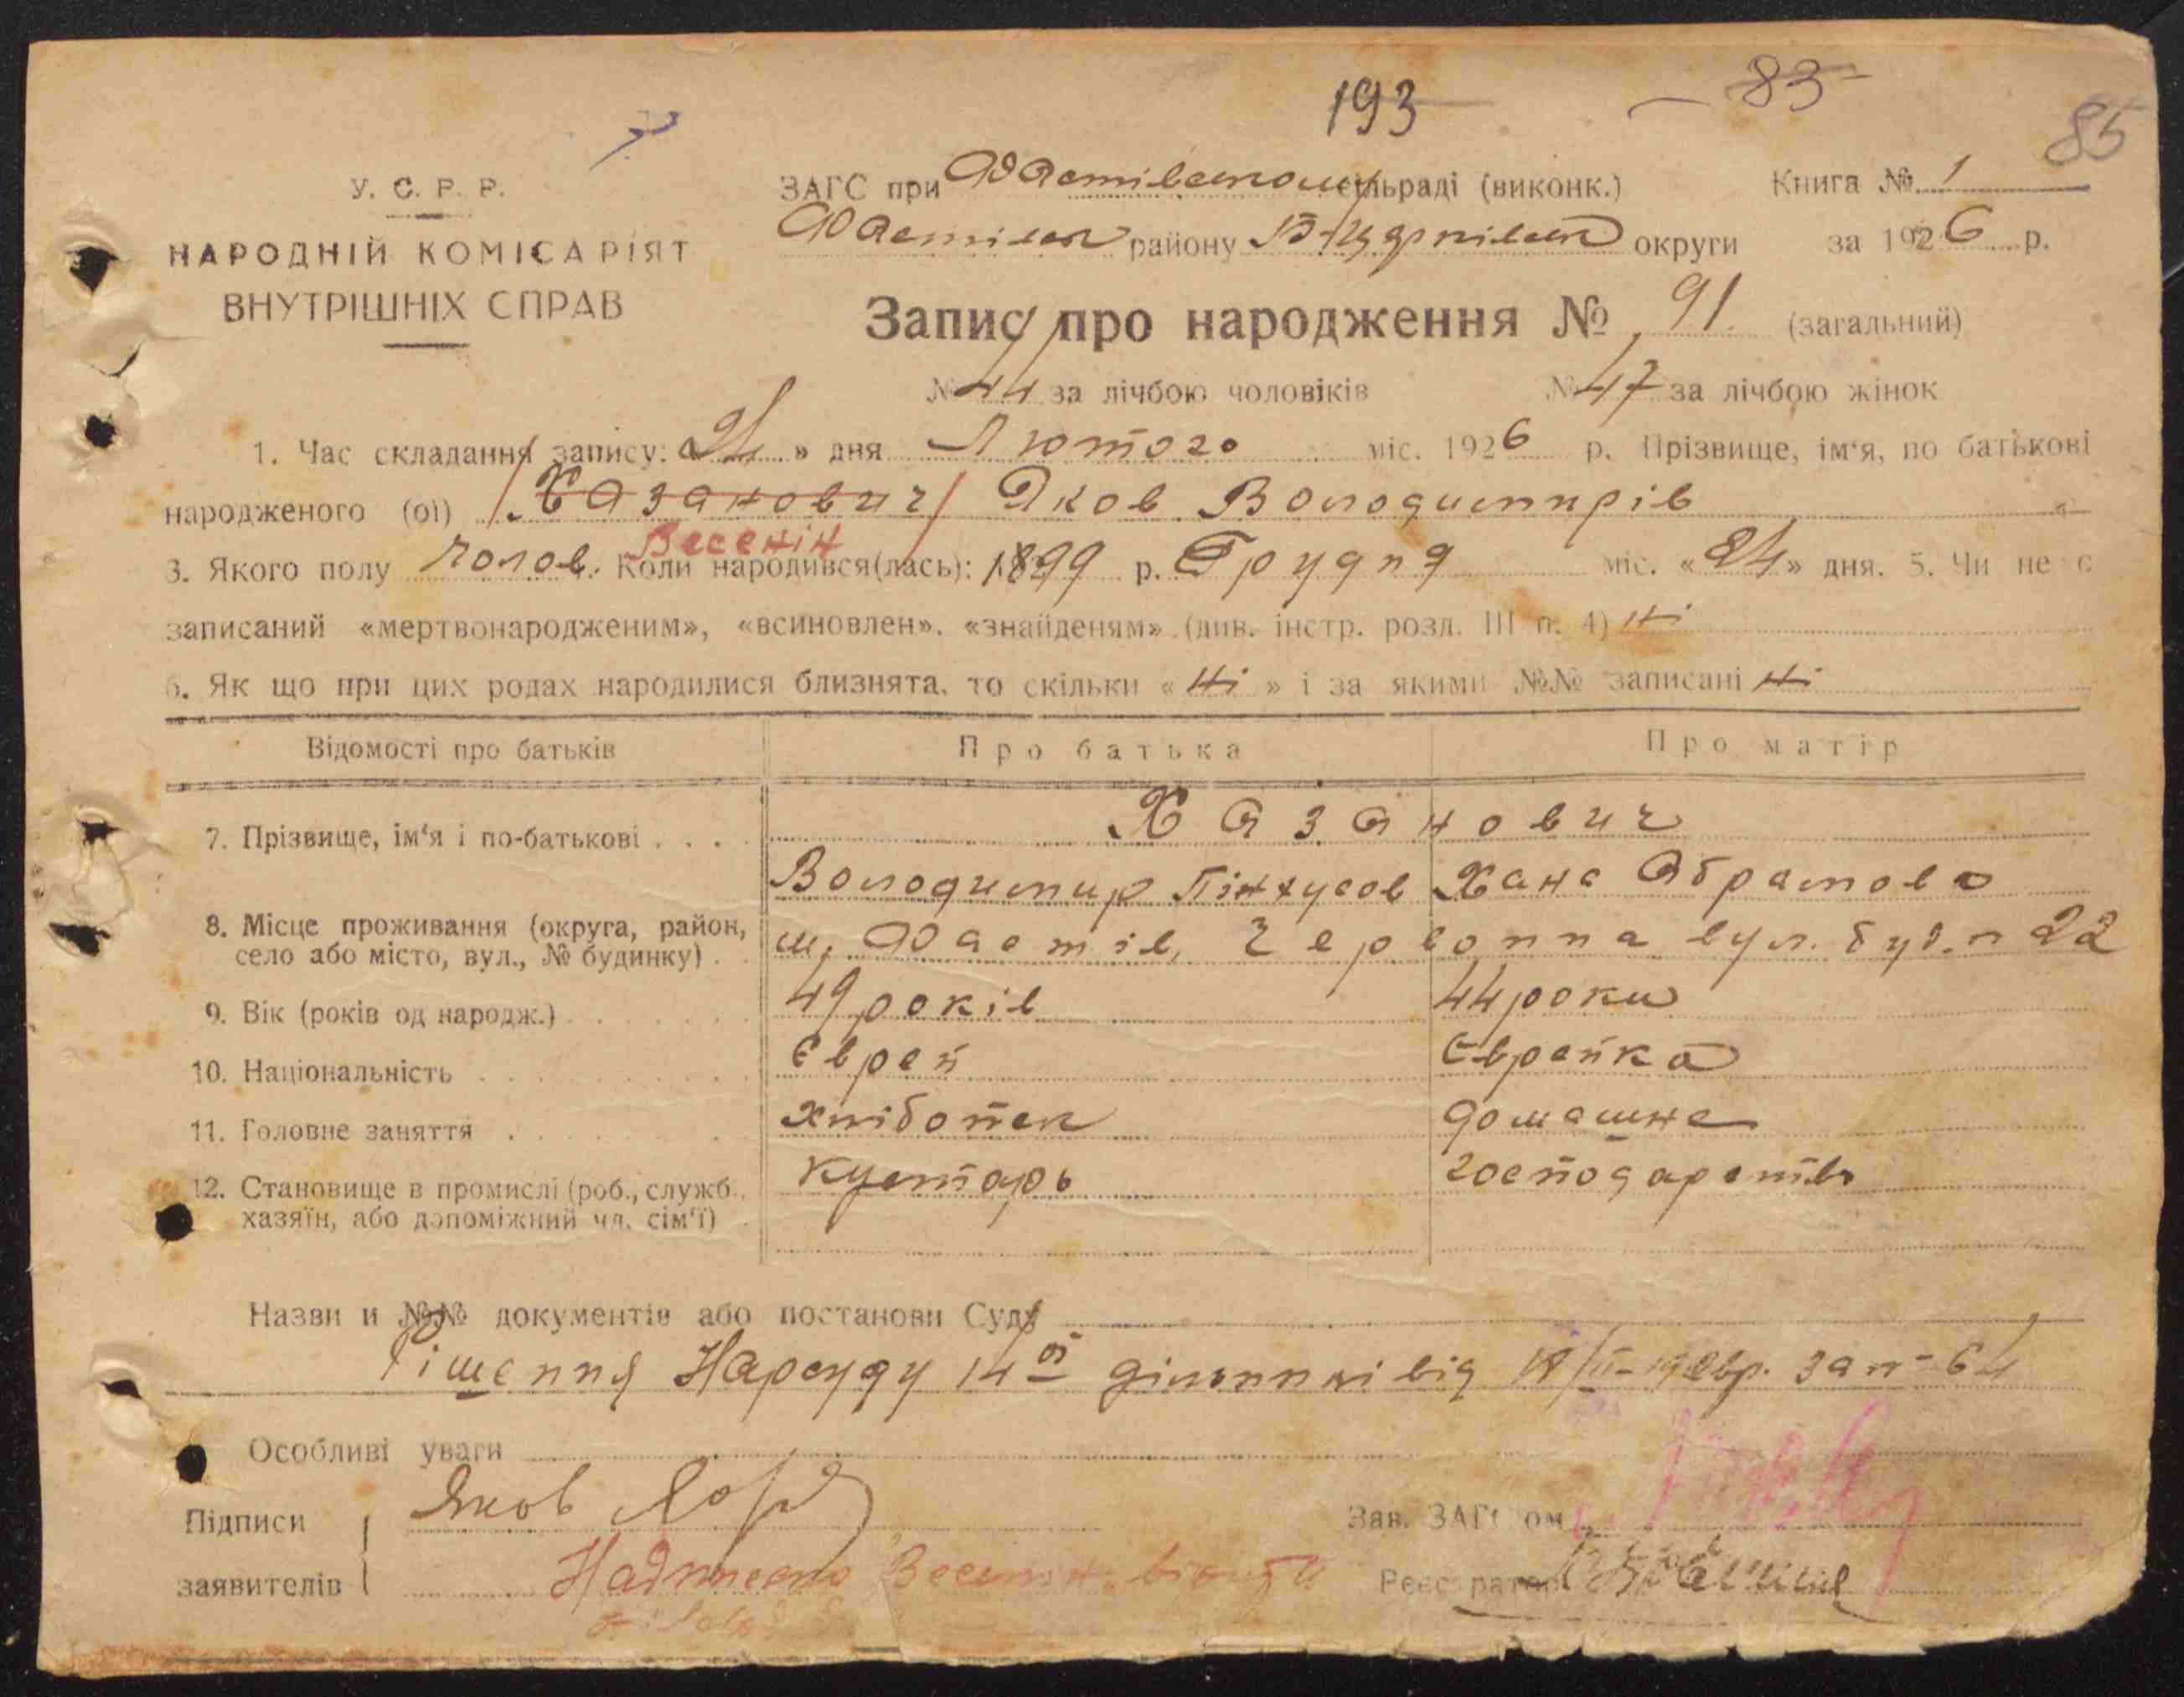 193
83
85
У. С. Р. Р.
НАРОДНІЙ КОМІСАРІЯТ
ВНУТРІШНІХ СПРАВ
ЗАГС при Фастівському сільраді (виконк.) Книга № 1
Фастівск району Б-Церківск округи за 1926 р.
Запис про народження № 91 (загальний)
№ 44 за лічбою чоловіків № 47 за лічбою жінок
1. Час складання запису: «24» дня Лютого міс. 1926 р. Прізвище, ім'я, по батькові
народженого (ої) Хазанович Яков Володимирів
Весенін
3. Якого полу Чолов. Коли народився(лась): 1899 р. Грудня міс. «24» дня. 5. Чи не є
записаний «мертвонародженим», «всиновлен», «знайденям» (див. інстр. розд. III п. 4) Ні
6. Як що при цих родах народилися близнята, то скільки «Ні» і за якими №№ записані Ні
Відомості про батьків Про батька Про матір
7. Прізвище, ім'я і по-батькові . . . Хазанович
Володимир Пінхусов Хана Абрамова
8. Місце проживання (округа, район,
село або місто, вул., № будинку) . м. Фастів, Червонна вул. буд. n 22
9. Вік (років од народж.) 49 років 44 роки
10. Національність Єврей Єврейка
11. Головне заняття Хлібопек домашнє
12. Становище в промислі (роб., служб.,
хазяїн, або допоміжний чл. сім'ї) кустарь господарств
Назви и №№ документів або постанови Суду
Рішення Нарсуду 14ої дільниці від за n- 64
Особливі уваги
Підписи
заявителів
Яков
Надписано Весенин
Зав. ЗАГСом
Реєстратор